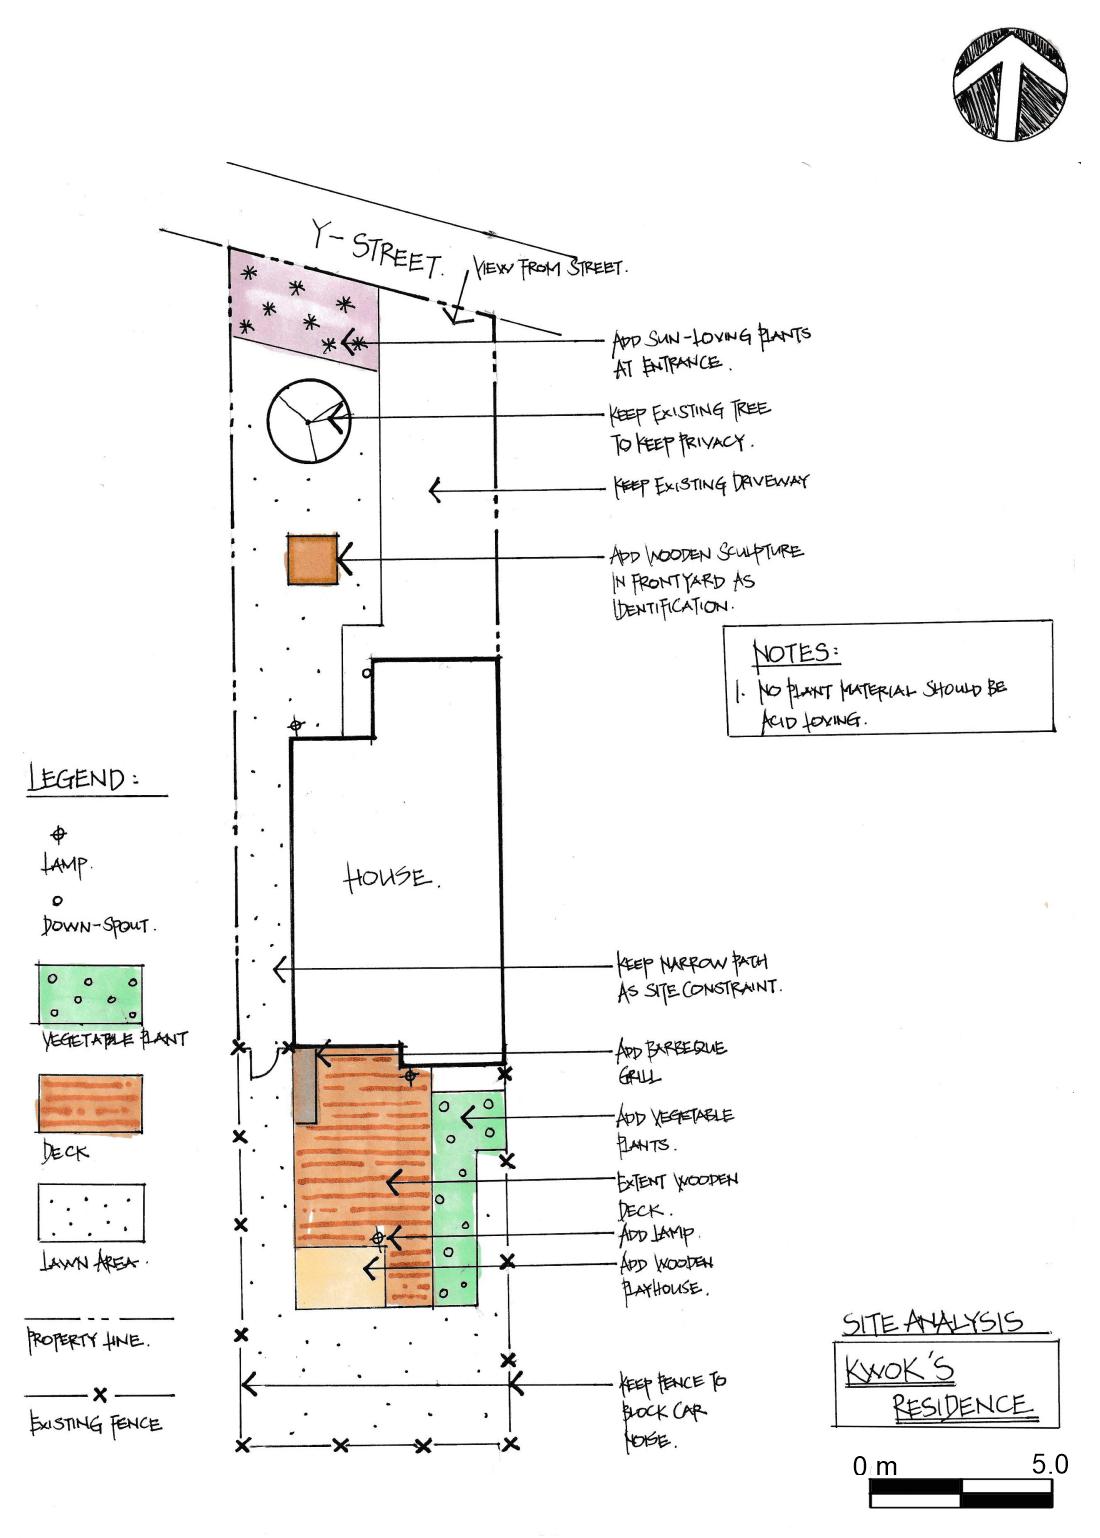 Y-STREET.
VIEW FROM STREET.
ADD SUN-LOVING PLANTS
AT ENTRANCE.
KEEP EXISTING TREE
TO KEEP PRIVACY.
KEEP EXISTING DRIVEWAY
ADD WOODEN SCULPTURE
IN FRONTYARD AS
IDENTIFICATION.
NOTES:
1. NO PLANT MATERIAL SHOULD BE
ACID LOVING.
LEGEND:
LAMP.
DOWN-SPOUT.
VEGETABLE PLANT
DECK
LAWN AREA.
PROPERTY LINE.
EXISTING FENCE
HOUSE.
KEEP NARROW PATH
AS SITE CONSTRAINT.
ADD BARBEQUE
GRILL
ADD VEGETABLE
PLANTS.
EXTENT WOODEN
DECK.
ADD LAMP.
ADD WOODEN
PLAYHOUSE.
KEEP FENCE TO
BLOCK CAR
NOISE.
SITE ANALYSIS
KWOK'S
RESIDENCE
0 m 5.0